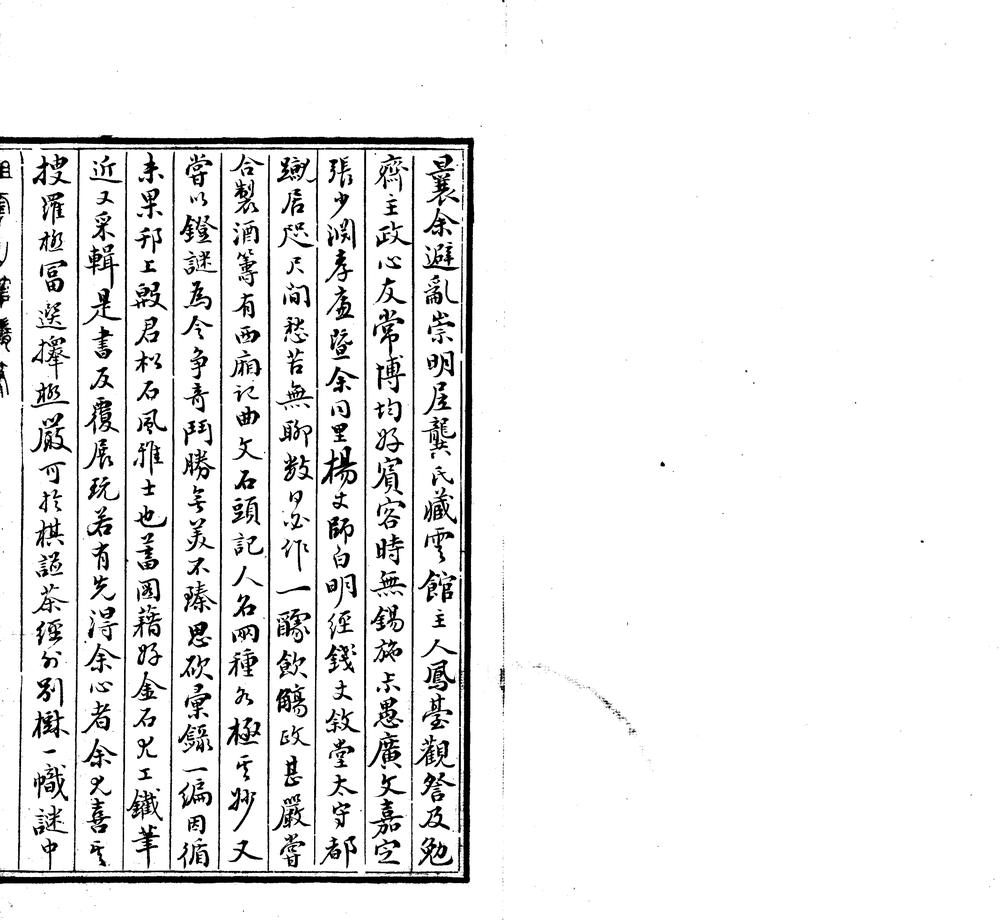 曩余避亂崇明居龔氏藏雲館主人鳳臺觀詧及勉
齋主政心友常博均好賓客時無錫施少愚廣文嘉定
張少淵孝廉暨余同里楊丈師白明經錢丈敘堂太守都
踰居咫尺間愁苦無聊數日必作一醵飲觴政甚嚴嘗
合製酒籌有西廂記曲文石頭記人名兩種各極其妙又
嘗以鐙謎為令爭奇鬥勝無美不臻思欲彙錄一編因循
未果邗上殷君松石風雅士也蓄圖籍好金石尤工鐵筆
近又采輯是書反覆展玩若有先得余心者余尤喜其
搜羅極富選擇極嚴可於棋譜茶經外別樹一幟謎中